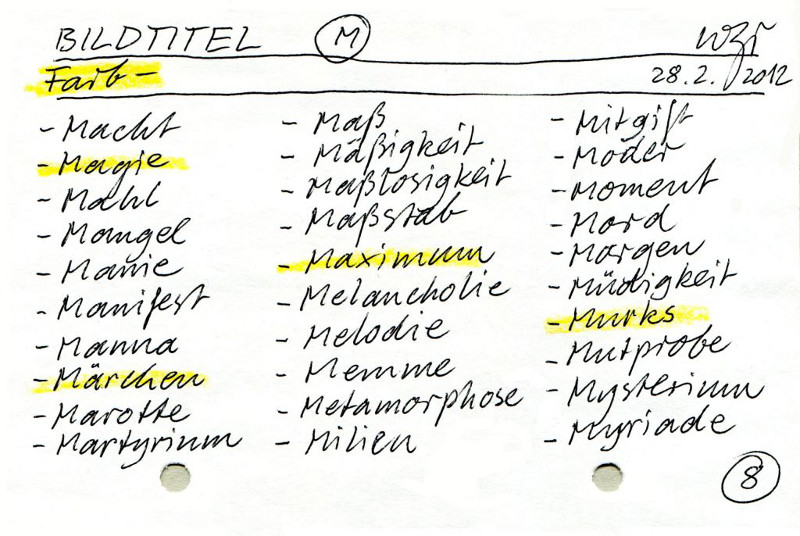 BILDTITEL M wzr
Farb- 28.2.2012
- Macht
- Magie
- Mahl
- Mangel
- Manie
- Manifest
- Manna
- Märchen
- Marotte
- Martyrium
- Maß
- Mäßigkeit
- Maßlosigkeit
- Maßstab
- Maximum
- Melancholie
- Melodie
- Memme
- Metamorphose
- Milieu
- Mitgift
- Moder
- Moment
- Mord
- Morgen
- Müdigkeit
- Murks
- Mutprobe
- Mysterium
- Myriade
8